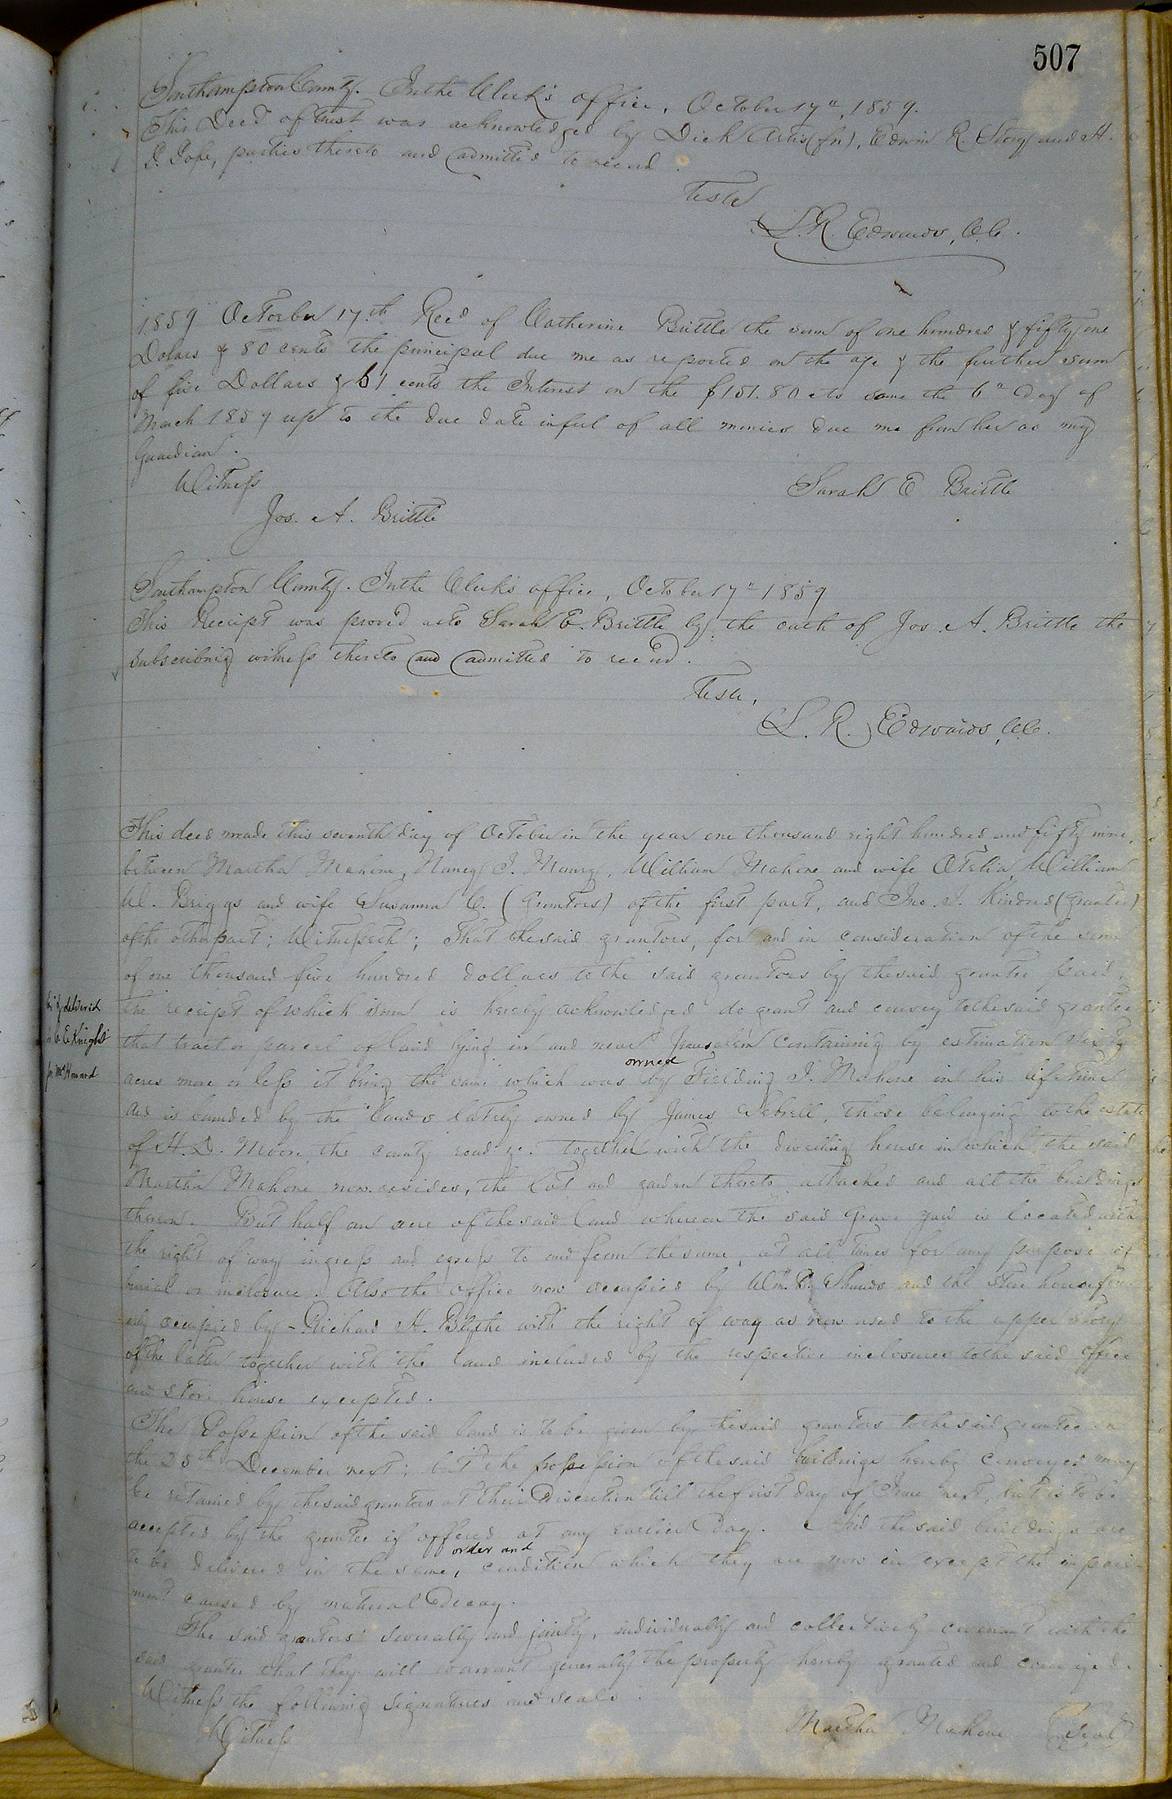 507
Southampton County. In the Clerk's office, October 17th, 1859.
This Deed of trust was acknowledged by Dick Artis (fn), Edwin R. Story and H.
I. Pope, parties thereto and admitted to record.
Teste
L. R. Edwards, C.C.
1859 October 17th Recd of Catherine Brittle the sum of one hundred & fifty one
Dolars & 80 cents the principal due me as reported on the age & the further sum
of five Dollars & 61 cents the Interest on the $151.80 cts some the 6th Day of
March 1859 up to the due date in ful of all monies due me from her as my
Guardian.
Witness
Sarah E Brittle
Jos. A. Brittle
Southampton County. In the Clerk's office, October 17th 1859
This Receipt was proved as to Sarah E. Brittle by the oath of Jos. A. Brittle the
subscribing witness thereto and admitted to record.
Teste,
L. R. Edwards, C.C.
This deed made this seventh day of October in the year one thousand eight hundred and fifty nine,
between Martha Mahone, Nancy I. Manry, William Mahone and wife Otelia, William
W. Briggs and wife Susanna C. (Grantors) of the first part, and Jno. J. Kindred (grantee)
of the other part; Witnesseth; That the said grantors, for and in consideration of the sum
of one thousand five hundred dollars to the said grantors by the said grantee paid,
the receipt of which sum is hereby acknowledged do grant and convey to the said grantee
delivered
E Knight
for Mr Howard
that tract or parcel of land lying in and near Jerusalem containing by estimation sixty
acres more or less it being the same which was owned by Fielding J. Mahone in his life time
and is bounded by the lands lately owned by James Sebrell, those belonging to the estate
of H. D. Moore, the county road &c. together with the dwelling house in which the said
Martha Mahone now resides, the lot and garden thereto attached and all the buildings
thereon. But half an acre of the said land whereon the said Grave yard is located with
the right of way ingress and egress to and from the same, at all times for any purpose of
burial or inclosure. Also the office now occupied by Wm. B. Shands and the store house
occupied by Richard H. Blythe with the right of way as now used to the upper story
of the latter together with the land included by the respective inclosures to the said office
and store house excepted.
The Possession of the said land is to be given by the said grantors to the said grantee on
the 25th December next; but the possession of the said buildings hereby conveyed may
be retained by the said grantors at their Discretion till the first day of June next, but is to be
accepted by the grantee if offered at any earlier Day. And the said buildings are
to be delivered in the same, order and condition which they are now in except the impair-
ment caused by natural Decay.
The said grantors severally and jointly, individually and collectively covenant with the
said grantee that they will warrant generally the property hereby granted and conveyed.
Witness the following signatures and seals.
Witness
Martha Mahone Seal